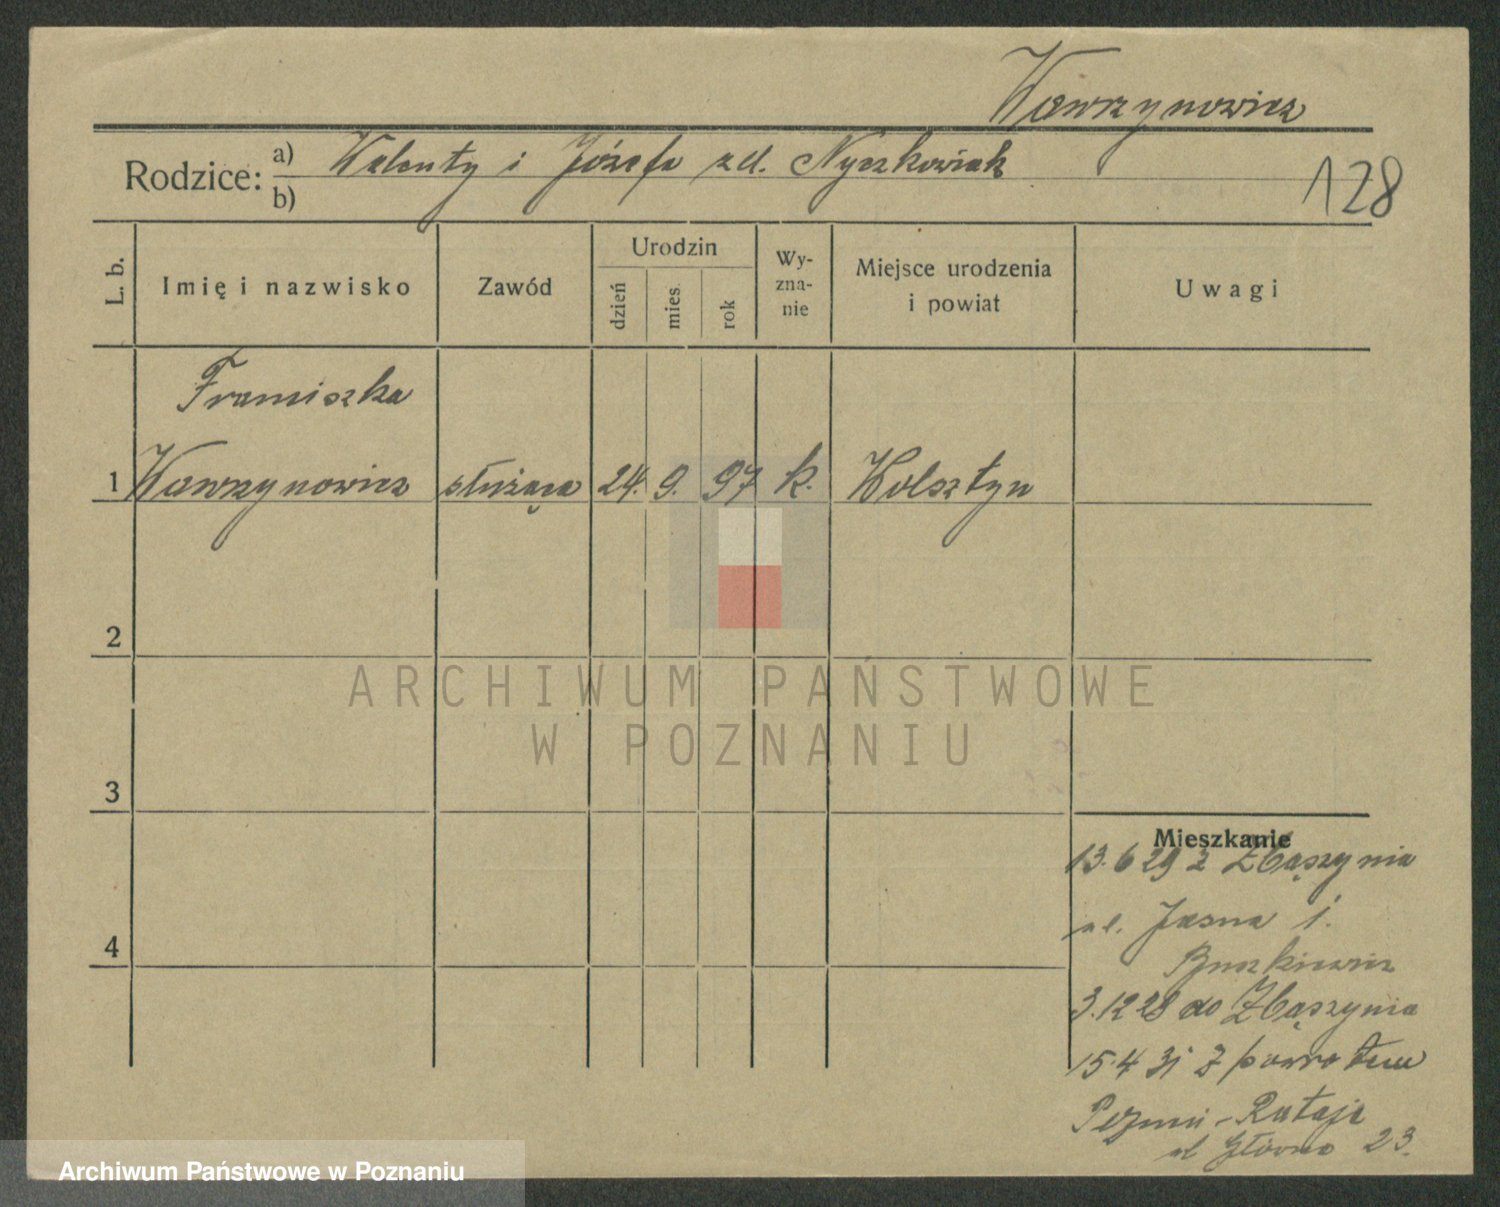 Wawrzynowicz
Rodzice: a) Walenty i Józefa zd. Nyczkowiak
b)
128
L. b.
Imię i nazwisko
Zawód
Urodzin
dzień
mies.
rok
Wy-
zna-
nie
Miejsce urodzenia
i powiat
Uwagi
Franciszka
1 Wawrzynowicz służąca 24. 9. 97 k. Wolsztyn
2
3
4
Mieszkanie
13.6 29 z Zbąszynia
ul. Jasna 1.
3.12 28 do Zbąszynia
15.4 31 z powrotem
Poznań - Rataje
ul Główna 23.
ARCHIWUM PAŃSTWOWE
W POZNANIU
Archiwum Państwowe w Poznaniu